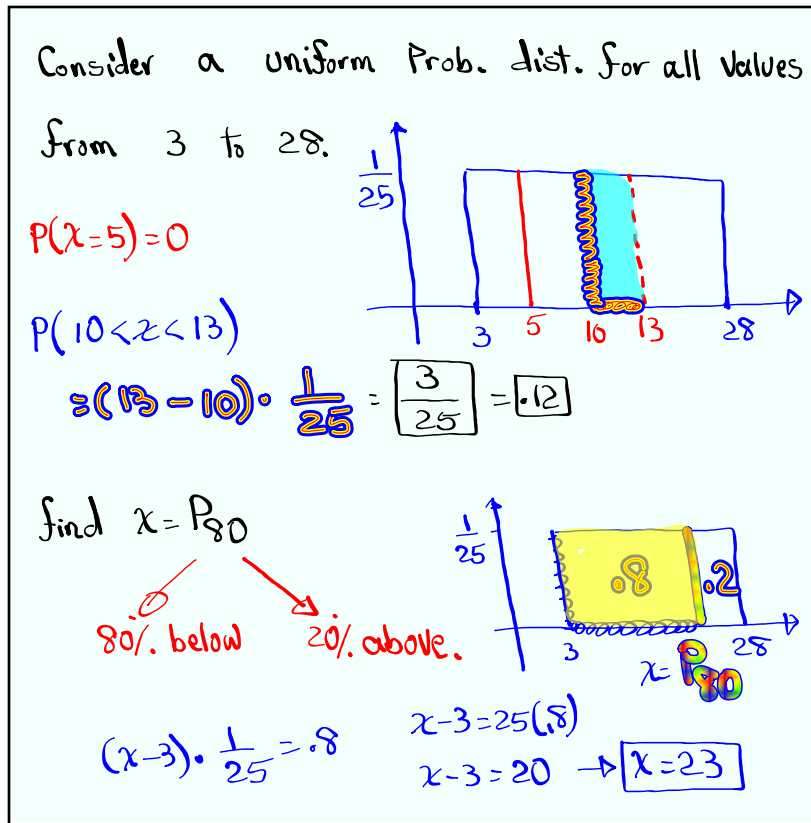 Consider a uniform Prob. dist. for all values
from 3 to 28.
1/25
P(x=5)=0
3 5 10 13 28
P(10<x<13)
=(13-10)· 1/25 = 3/25 = .12
find x=P80
1/25
.8 .2
80% below 20% above.
3 28
x= P80
(x-3)· 1/25 = .8
x-3=25(.8)
x-3=20 → x=23